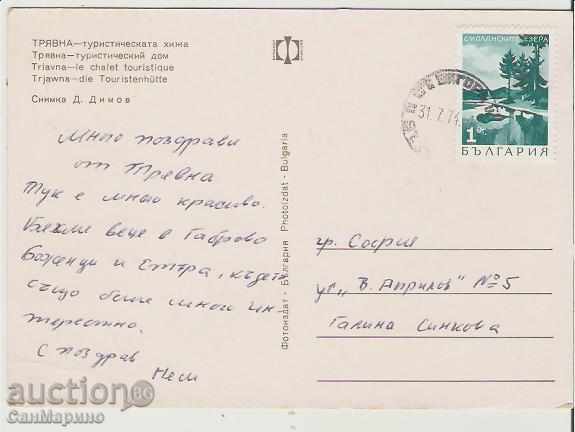 ТРЯВНА—туристическата хижа
Трявна—туристический дом
Triavna—le chalet touristique
Trjawna—die Touristenhütte
Снимка Д. Димов
Много поздрави
от Тревна
Тук е много красиво.
Бяхме вече в Габрово
Боженци и Етъра, където
също беше много ин-
тересно.
С поздрав
Фотоиздат - България Photoizdat - Bulgaria
СМОЛЯНСКИТЕ ЕЗЕРА
1 ст.
БЪЛГАРИЯ
31.7.74
гр. София
ул. „В. Априлов" № 5
Галина Синкова
auction BG
СанМарино